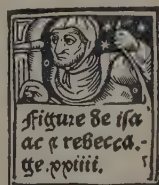 Figure de isa
ac ⁊ rebecca.-
ge.xxiiii.